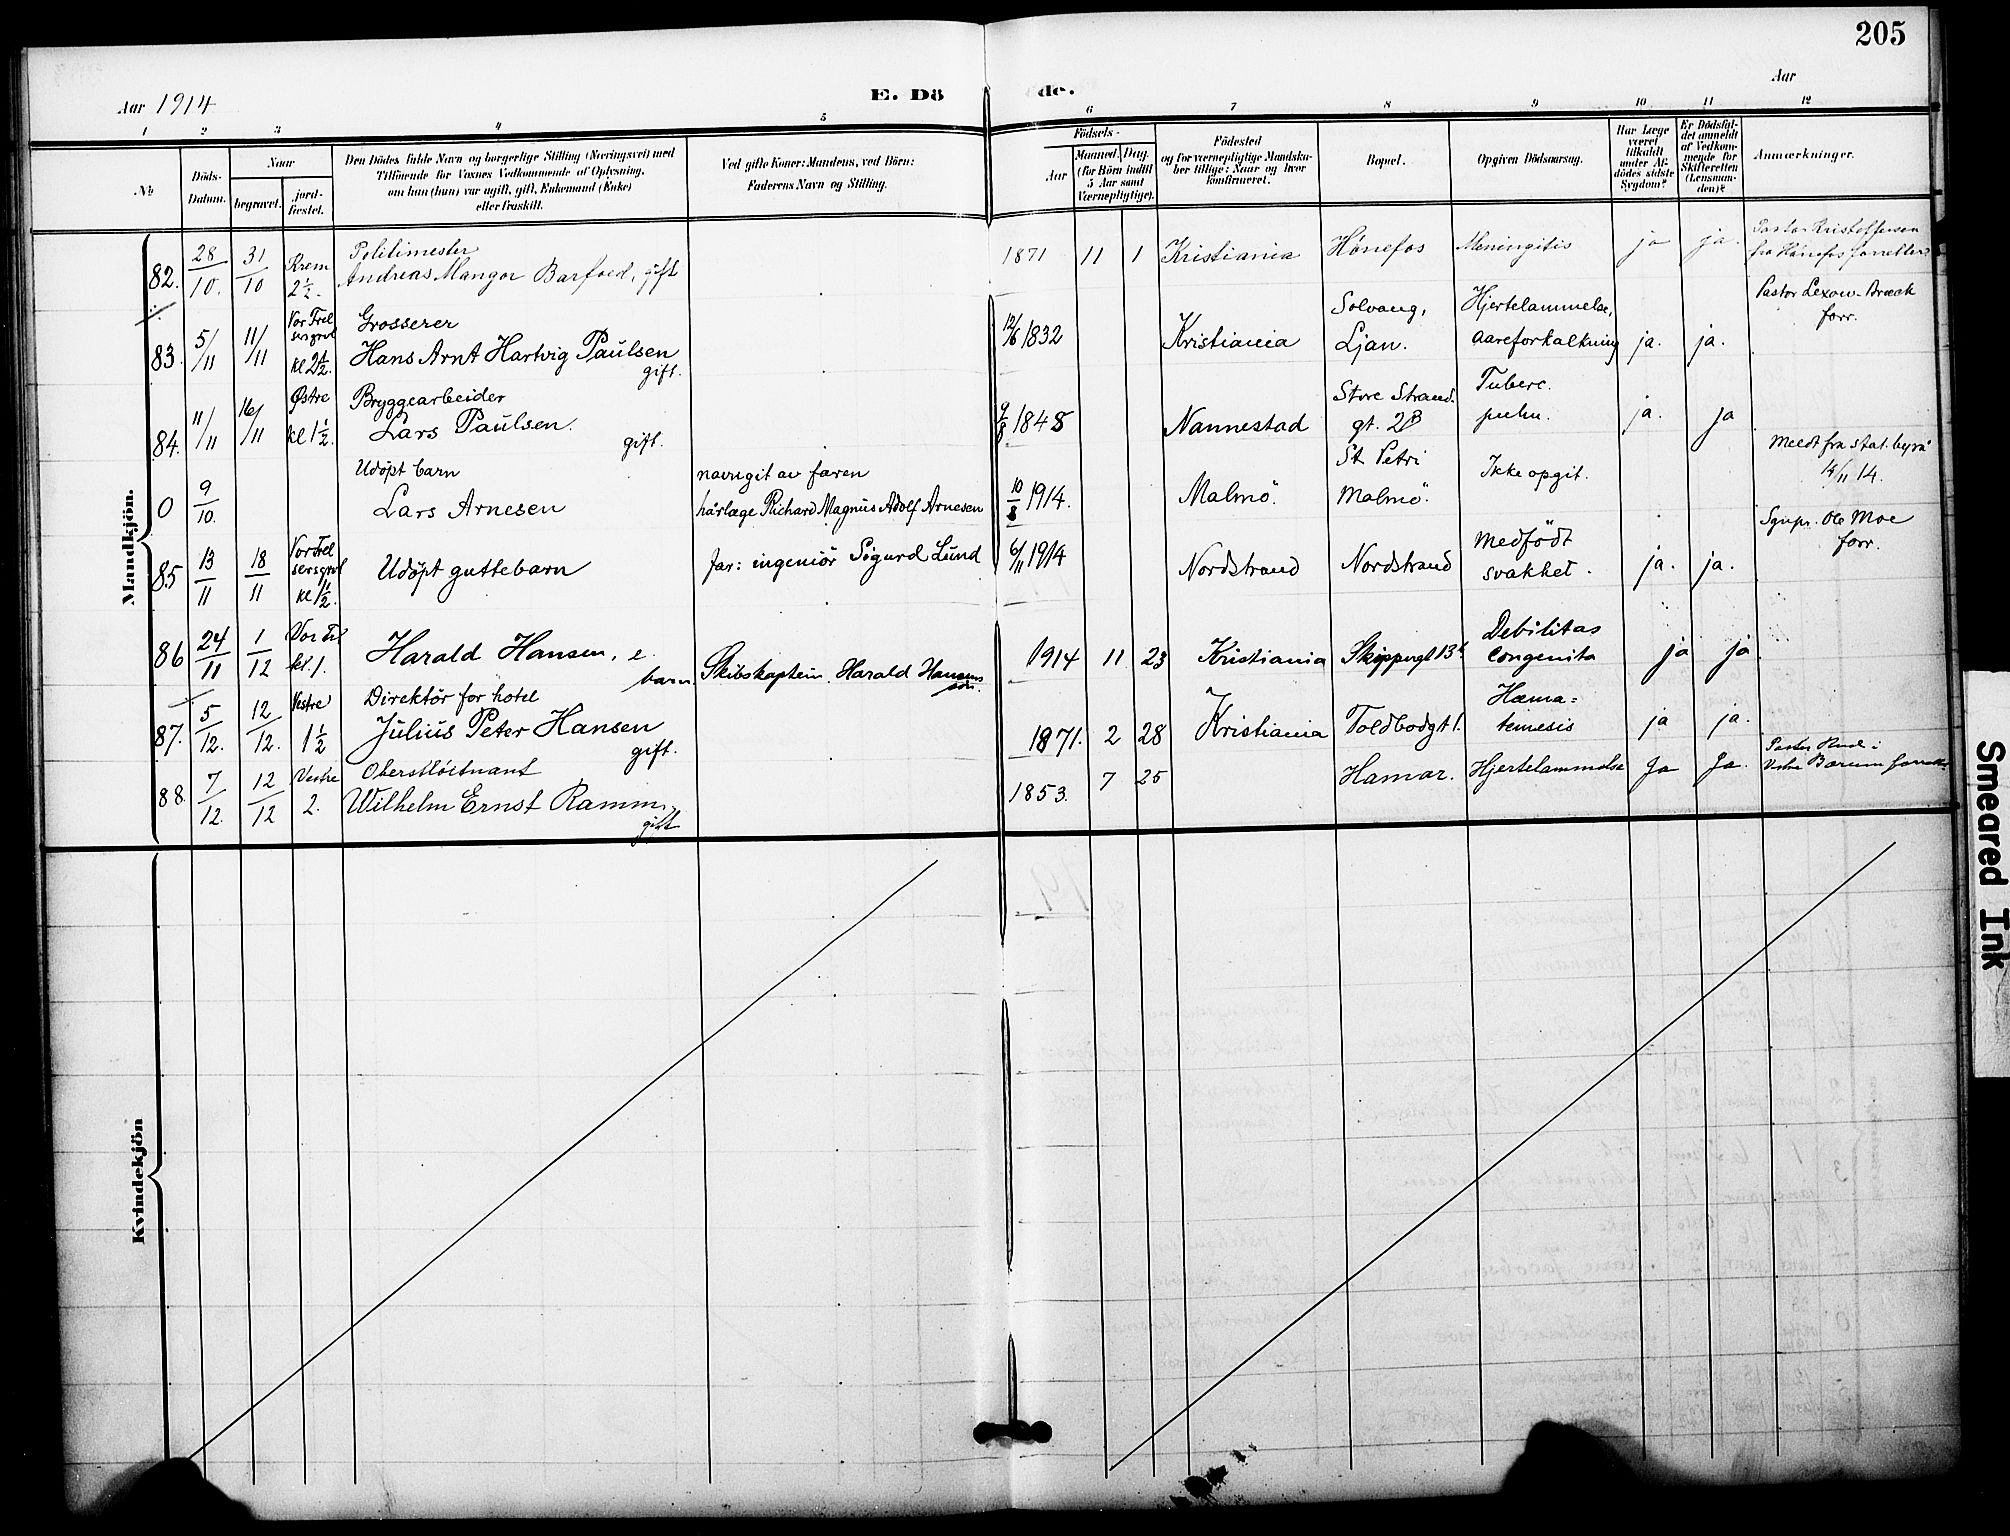 205
Aar 1914
E. Dö
de.
Aar
1 2 3 4 5 6 7 8 9 10 11 12
No
Döds-
Datum.
Naar
begravet.
jord-
fæstet.
Den Dödes fulde Navn og borgerlige Stilling (Næringsvei) med
Tilföiende for Voxnes Vedkommende af Oplysning,
om han (hun) var ugift, gift, Enkemand (Enke)
eller fraskilt.
Ved gifte Koner: Mandens, ved Börn:
Faderens Navn og Stilling.
Födsels-
Aar
Maaned. Dag.
(for Börn indtil
5 Aar samt
Værnepligtige).
Födested
og for værnepligtige Mandska-
ber tillige: Naar og hvor
konfirmeret.
Bopæl.
Opgiven Dödsaarsag.
Har Læge
været
tilkaldt
under Af-
dödes sidste
Sygdom?
Er Dödsfal-
det anmeldt
af Vedkom-
mende for
Skifteretten
(Lensman-
den)?
Anmærkninger.
Mandkjön.
82. 28/10. 31/10 Krem 2½.
Politimester
Andreas Mangor Barfoed, gift
1871 11 1 Kristiania Hönefos Meningitis ja ja.
Pastor Kristoffersen
fra Hönefos forretter
83. 5/11 11/11 Vor Frel
sersgrvl
kl 2½.
Grosserer
Hans Arnt Hartvig Paulsen
gift.
12/6 1832 Kristiania
Solvang,
Ljan.
Hjertelammelse,
aareforkalkning ja. ja.
Pastor Lexow-Bræck
forr.
84. 11/11 16/11 Østre
kl 1½.
Bryggearbeider
Lars Paulsen.
gift.
9/8 1848 Nannestad
Store Strand-
gt. 2B
Tuberc.
pulm. ja. ja
0 9/10.
Udöpt barn
Lars Arnesen
navngit av faren
hårlæge Richard Magnus Adolf Arnesen
10/8 1914. Malmö.
St Petri
Malmö.
Ikke opgit.
Meldt fra stat. byrå
14/11 14.
85 13/11 18/11 Vor Frel
sersgrvl
kl 1½.
Udöpt guttebarn
far: ingeniör Sigurd Lund
6/11 1914 Nordstrand Nordstrand
Medfödt
svakhet. ja. ja.
Sgnpr. Ole Moe
forr.
86 24/11 1/12 Vor Fr
kl. 1.
Harald Hansen, e.
barn.
Skibskaptein Harald Hansens
sön.
1914 11 23 Kristiania Skippergt 13
Debilitas
congenita ja ja
87. 5/12. 12/12. Vestre
1½
Direktör for hotel
Julius Peter Hansen
gift.
1871. 2 28 Kristiania Toldbodgt 1.
Hæma-
temesis ja ja.
88. 7/12. 12/12 Vestre
2.
Oberstlöitnant
Wilhelm Ernst Ramm,
gift
1853. 7 25 Hamar. Hjertelammelse Ja Ja.
Vestre Bærum forretter
Kvindekjön
Smeared Ink